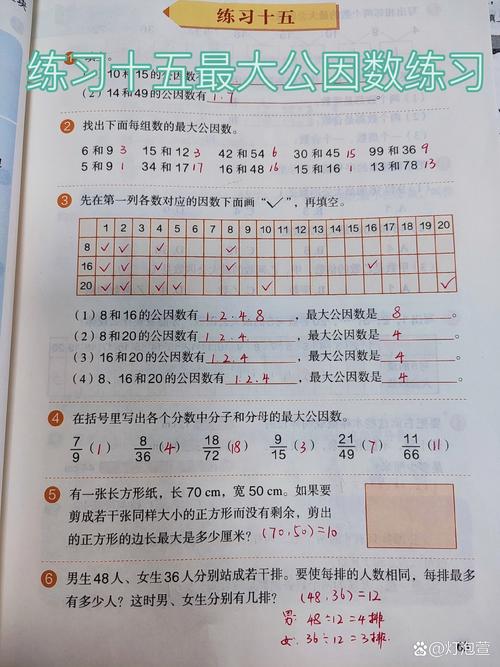 练习十五
练习十五最大公因数练习
10和15的公因数
(2) 14和49的公因数有 1.7
2 找出下面每组数的最大公因数。
6和9 3 15和12 3 42和54 6 30和45 15 99和36 9
5和9 1 34和17 17 16和48 16 15和16 1 13和78 13
3 先在第一列各数对应的因数下面画“✓”，再填空。
1 2 3 4 5 6 7 8 9 10 11 12 13 14 15 16 17 18 19 20
8 ✓ ✓ ✓ ✓
16 ✓ ✓ ✓ ✓ ✓
20 ✓ ✓ ✓ ✓ ✓ ✓
(1) 8和16的公因数有 1.2.4.8 ，最大公因数是 8 。
(2) 8和20的公因数有 1.2.4 ，最大公因数是 4 。
(3) 16和20的公因数有 1.2.4 ，最大公因数是 4 。
(4) 8、16和20的公因数有 1.2.4 ，最大公因数是 4 。
4 在括号里写出各个分数中分子和分母的最大公因数。
7/9 (1) 8/36 (4) 18/72 (18) 9/15 (3) 21/49 (7) 11/66 (11)
5 有一张长方形纸，长70 cm，宽50 cm。如果要
剪成若干张同样大小的正方形而没有剩余，剪出
的正方形的边长最大是多少厘米？ (70,50)=10
6 男生48人、女生36人分别站成若干排。要使每排的人数相同，每排最多
有多少人？这时男、女生分别有几排？ (48,36)=12
男: 48÷12=4排
女: 36÷12=3排.
@灯泡萱